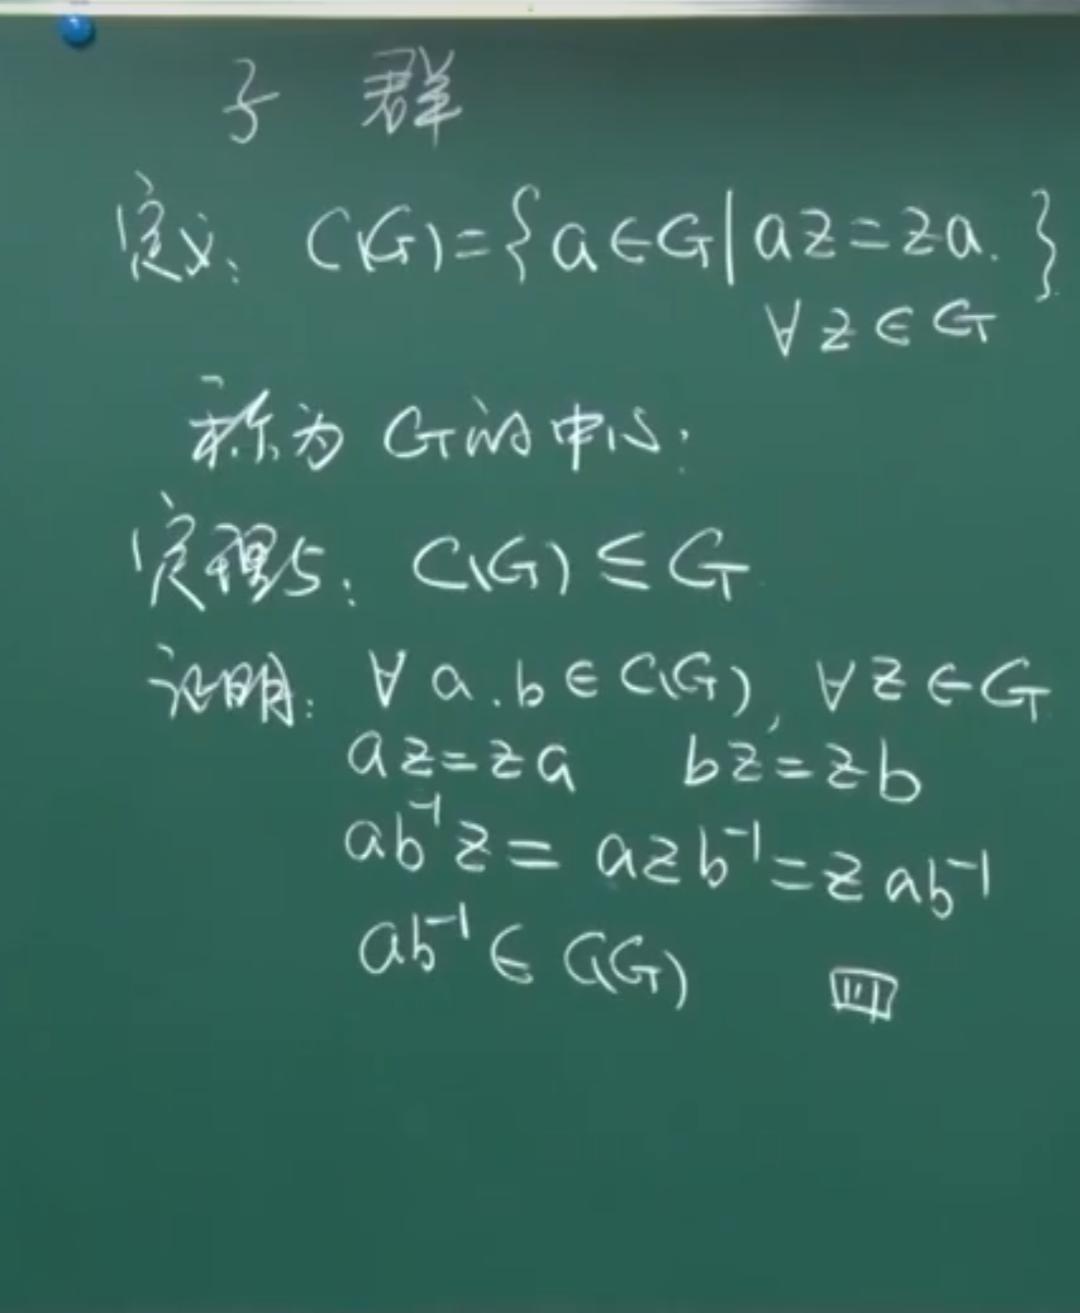 子 群
定义: C(G)={a∈G|az=za.}
∀z∈G
称为G的中心:
定理5: C(G)≤G
证明: ∀a.b∈C(G), ∀z∈G
az=za bz=zb
ab⁻¹z=azb⁻¹=zab⁻¹
ab⁻¹∈C(G)